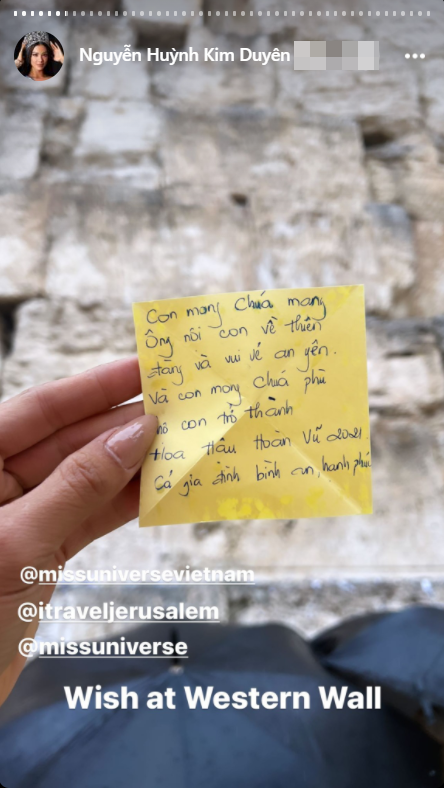 Nguyễn Huỳnh Kim Duyên
Con mong Chúa mang
Ông nội con về thiên
đàng và vui vẻ an yên.
Và con mong Chúa phù
hô con trở thành
Hoa Hâu Hoàn Vũ 2021.
Cả gia đình bình an, hạnh phúc
@missuniversevietnam
@itraveljerusalem
@missuniverse
Wish at Western Wall